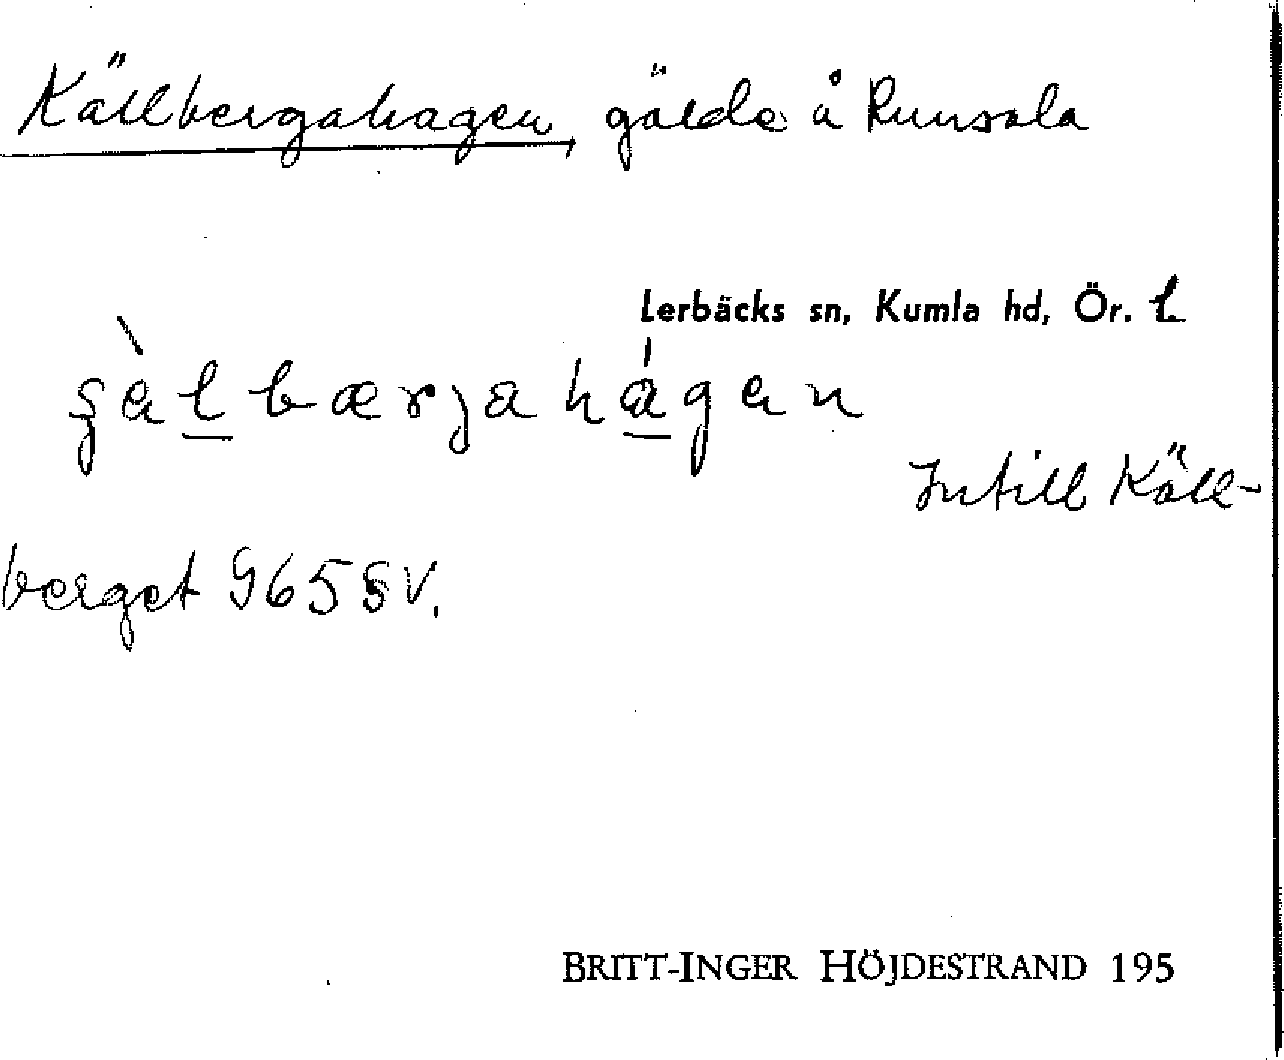 Källbergahagen, gärde å Runsala
Lerbäcks sn, Kumla hd, Ör. L
Intill Käll-
berget 9655V.
BRITT-INGER HÖJDESTRAND 195